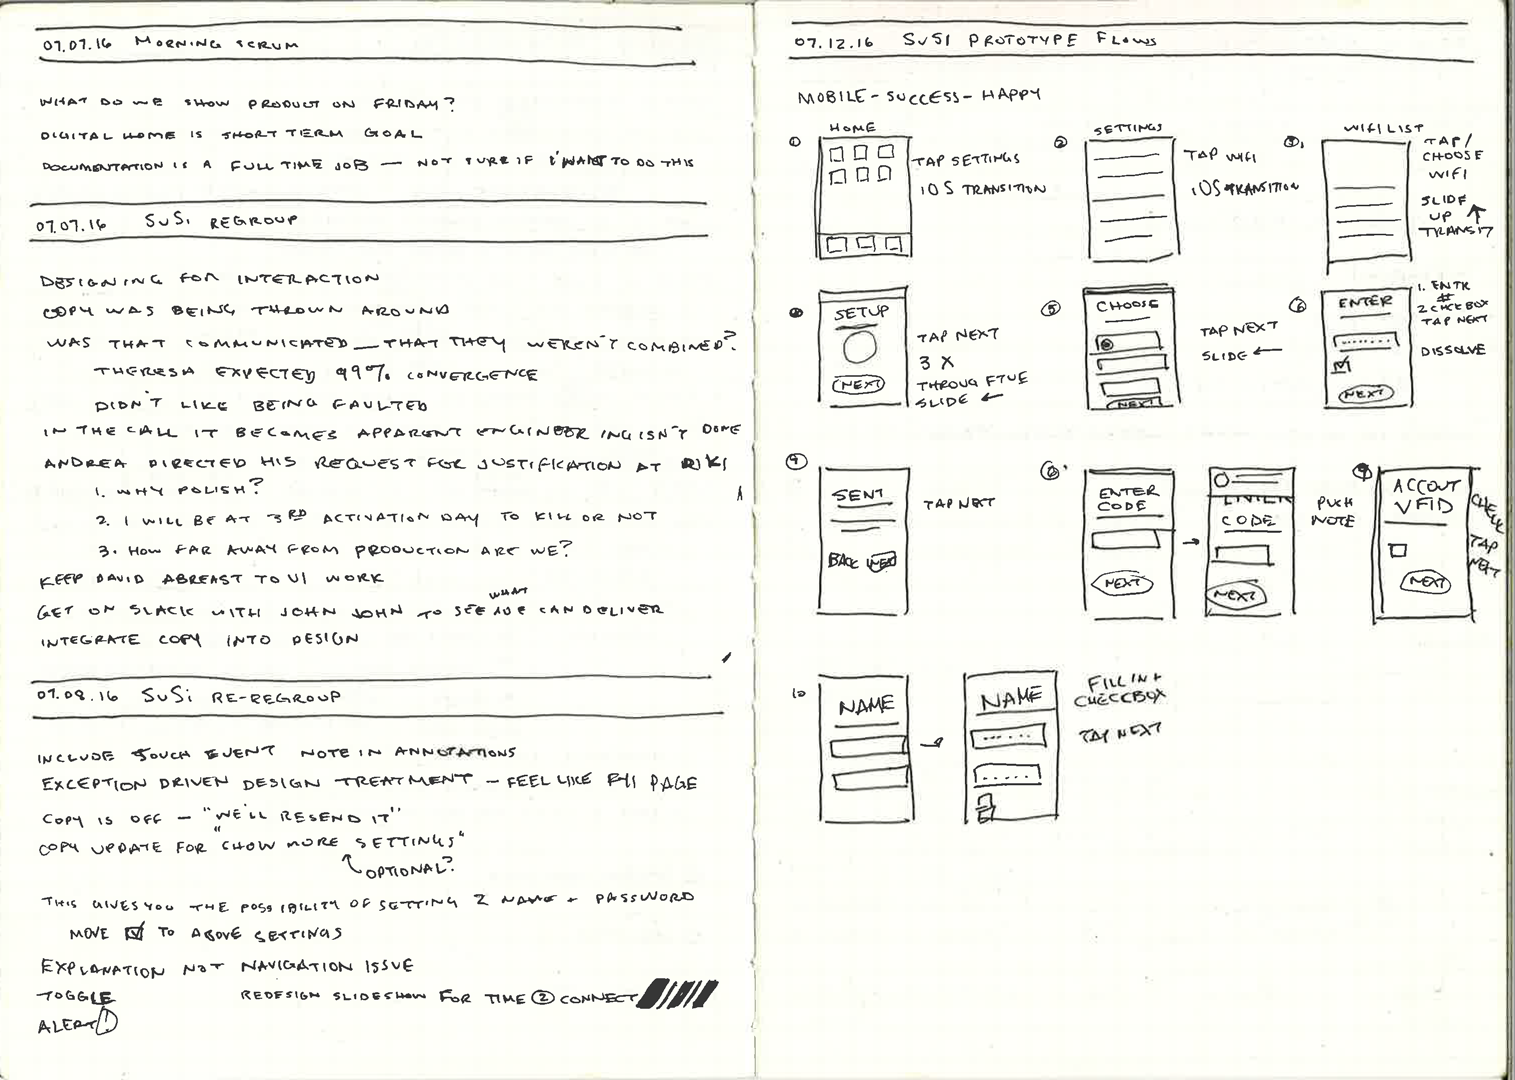 07.07.16 MORNING SCRUM
WHAT DO WE SHOW PRODUCT ON FRIDAY?
DIGITAL HOME IS SHORT TERM GOAL
DOCUMENTATION IS A FULL TIME JOB — NOT SURE IF I WANT TO DO THIS
07.07.16 SuSi REGROUP
DESIGNING FOR INTERACTION
COPY WAS BEING THROWN AROUND
WAS THAT COMMUNICATED — THAT THEY WEREN'T COMBINED?
THERESA EXPECTED 99% CONVERGENCE
DIDN'T LIKE BEING FAULTED
IN THE CALL IT BECOMES APPARENT ENGINEERING ISN'T DONE
ANDREA DIRECTED HIS REQUEST FOR JUSTIFICATION AT RIKI
1. WHY POLISH?
2. I WILL BE AT 3RD ACTIVATION DAY TO KILL OR NOT
3. HOW FAR AWAY FROM PRODUCTION ARE WE?
KEEP DAVID ABREAST TO UI WORK
WHAT
GET ON SLACK WITH JOHN JOHN TO SEE WE CAN DELIVER
INTEGRATE COPY INTO DESIGN
07.08.16 SuSi RE-REGROUP
INCLUDE TOUCH EVENT NOTE IN ANNOTATIONS
EXCEPTION DRIVEN DESIGN TREATMENT — FEEL LIKE FYI PAGE
COPY IS OFF — "WE'LL RESEND IT"
COPY UPDATE FOR "SHOW MORE SETTINGS"
OPTIONAL?
THIS GIVES YOU THE POSSIBILITY OF SETTING 2 NAME + PASSWORD
MOVE ☑ TO ABOVE SETTINGS
EXPLANATION NOT NAVIGATION ISSUE
TOGGLE REDESIGN SLIDESHOW FOR TIME ② CONNECT
ALERT !
07.12.16 SuSi PROTOTYPE FLOWS
MOBILE - SUCCESS - HAPPY
① HOME
TAP SETTINGS
iOS TRANSITION
② SETTINGS
TAP WIFI
iOS TRANSITION
③. WIFI LIST
TAP/
CHOOSE
WIFI
SLIDE
UP ↑
TRANSIT
SETUP
NEXT
TAP NEXT
3 X
THROUG FTUE
SLIDE ←
⑤ CHOOSE
NEXT
TAP NEXT
SLIDE ←
⑥ ENTER
NEXT
1. ENTR
#
2 CHCKBOX
TAP NEXT
DISSOLVE
SENT
BACK NEXT
TAP NEXT
⑧ ENTER
CODE
NEXT
→
CODE
NEXT
PUSH
NOTE
⑨ ACCOUT
VFID
NEXT
CHECK
TAP
NEXT
10 NAME
→
NAME
FILL IN +
CHECKBOX
TAP NEXT